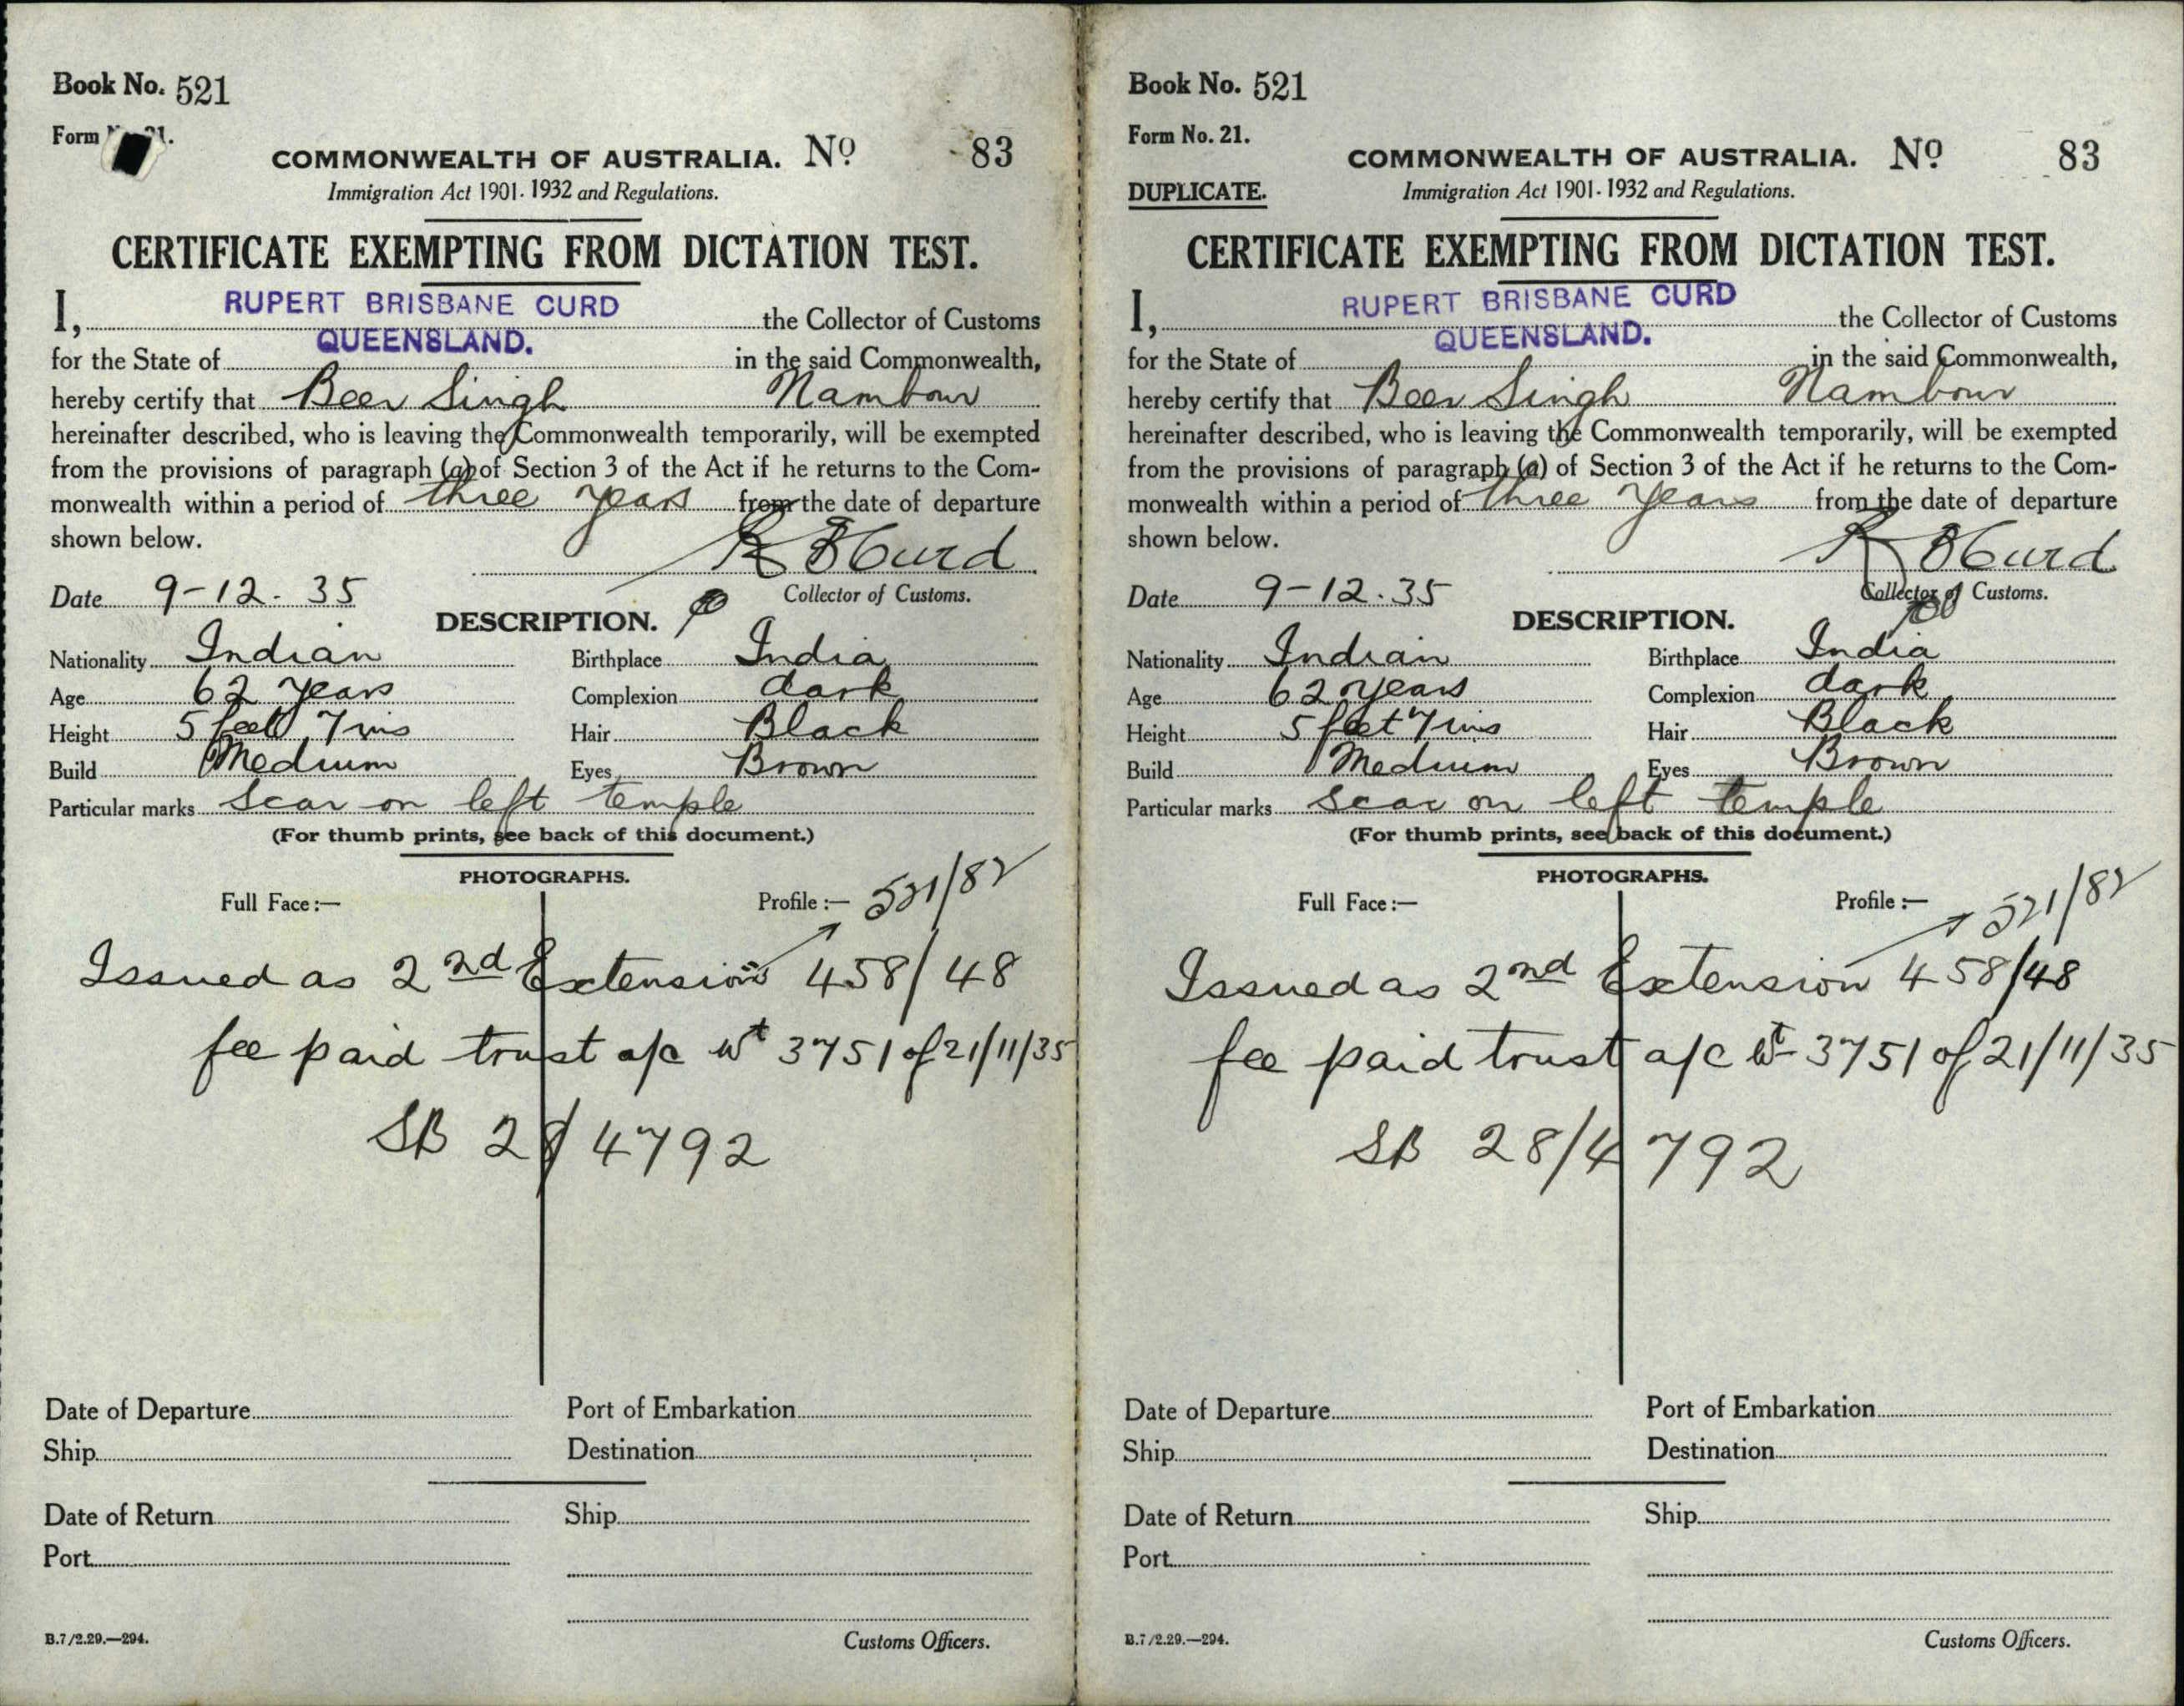 Book No. 521
Form No. 21.
COMMONWEALTH OF AUSTRALIA. No 83
Immigration Act 1901-1932 and Regulations.
CERTIFICATE EXEMPTING FROM DICTATION TEST.
RUPERT BRISBANE CURD
I, the Collector of Customs
QUEENSLAND.
for the State of in the said Commonwealth,
hereby certify that Beer Singh Nambour
hereinafter described, who is leaving the Commonwealth temporarily, will be exempted
from the provisions of paragraph (a) of Section 3 of the Act if he returns to the Com-
monwealth within a period of three years from the date of departure
shown below.
R B Curd
Date 9-12.35 Collector of Customs.
DESCRIPTION.
Nationality Indian Birthplace India
Age 62 years Complexion dark
Height 5 feet 7 ins Hair Black
Build Medium Eyes Brown
Particular marks Scar on left temple
(For thumb prints, see back of this document.)
PHOTOGRAPHS.
Full Face :— Profile :— 521/82
Issued as 2nd Extension 458/48
fee paid trust a/c wt 3751 of 21/11/35
SB 28/4792
Date of Departure Port of Embarkation
Ship Destination
Date of Return Ship
Port
B.7/2.29.—294. Customs Officers.
Book No. 521
Form No. 21.
COMMONWEALTH OF AUSTRALIA. No 83
DUPLICATE. Immigration Act 1901-1932 and Regulations.
CERTIFICATE EXEMPTING FROM DICTATION TEST.
RUPERT BRISBANE CURD
I, the Collector of Customs
QUEENSLAND.
for the State of in the said Commonwealth,
hereby certify that Beer Singh Nambour
hereinafter described, who is leaving the Commonwealth temporarily, will be exempted
from the provisions of paragraph (a) of Section 3 of the Act if he returns to the Com-
monwealth within a period of three years from the date of departure
shown below.
R B Curd
Date 9-12.35 Collector of Customs.
DESCRIPTION.
Nationality Indian Birthplace India
Age 62 years Complexion dark
Height 5 feet 7 ins Hair Black
Build Medium Eyes Brown
Particular marks Scar on left temple
(For thumb prints, see back of this document.)
PHOTOGRAPHS.
Full Face :— Profile :— 521/82
Issued as 2nd Extension 458/48
fee paid trust a/c wt 3751 of 21/11/35
SB 28/4792
Date of Departure Port of Embarkation
Ship Destination
Date of Return Ship
Port
B.7/2.29.—294. Customs Officers.